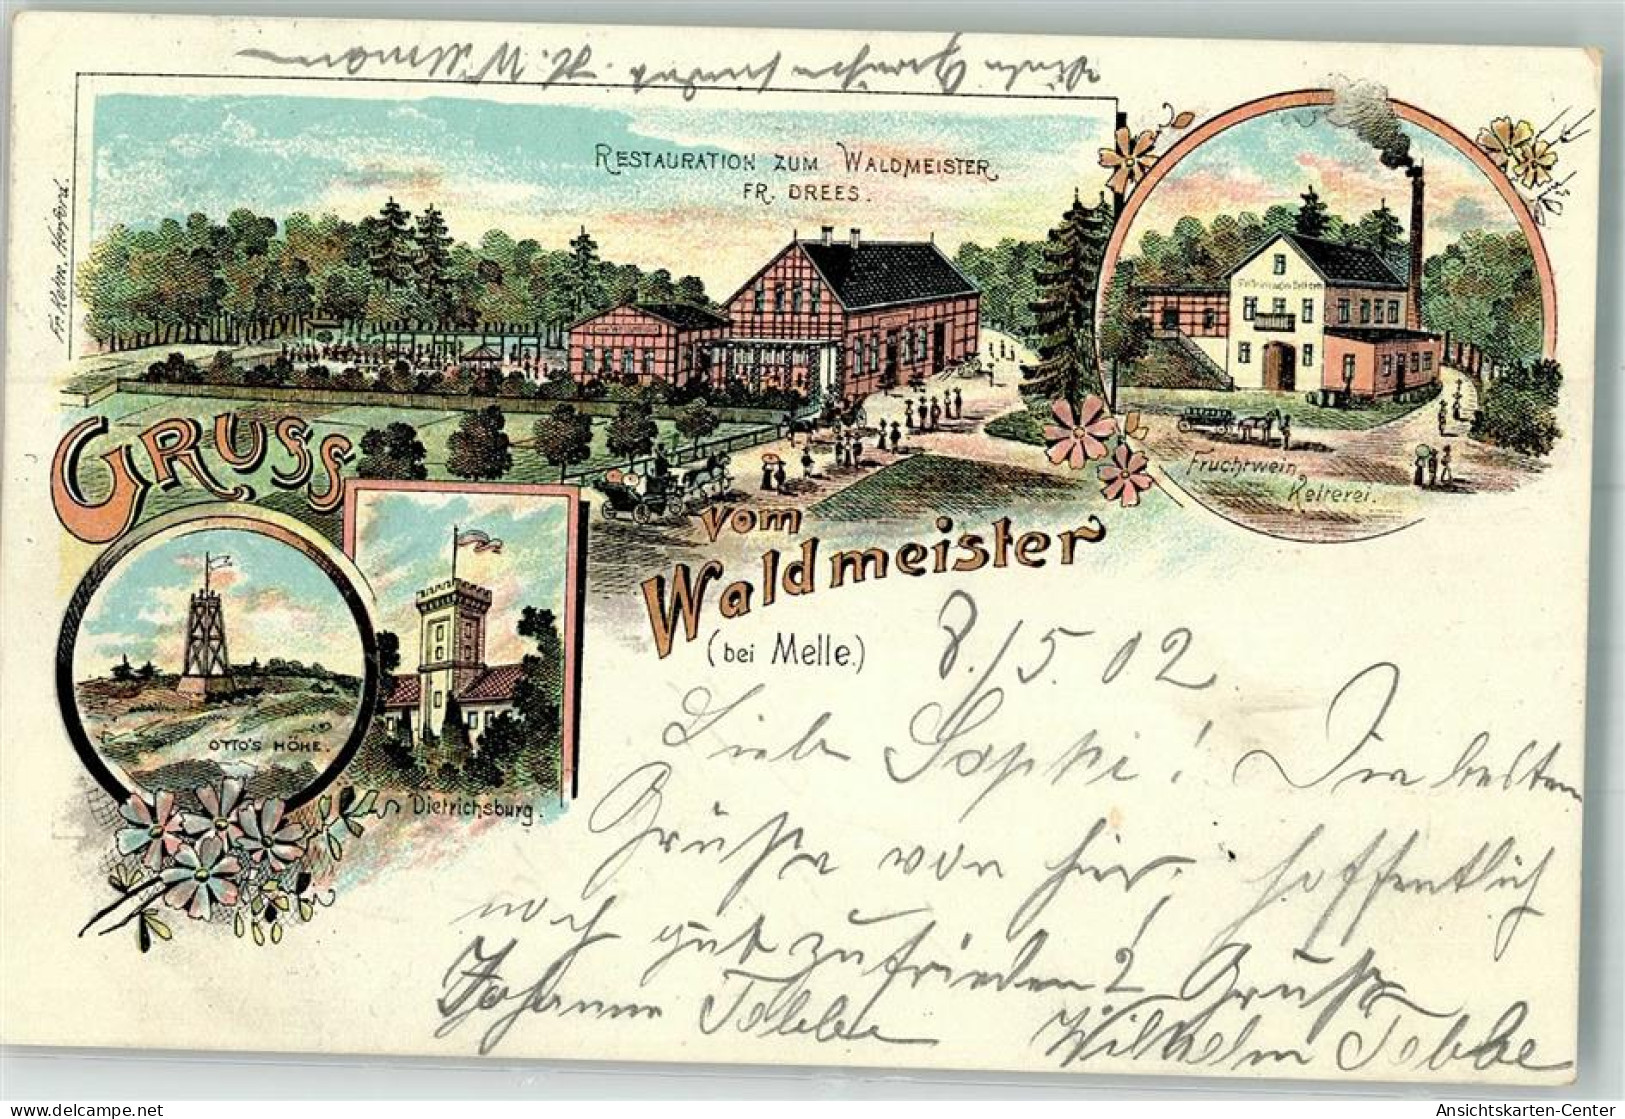 RESTAURATION ZUM WALDMEISTER
FR. DREES.
Fruchtwein,
Kelterei.
GRUSS
vom
Waldmeister
(bei Melle.)
OTTO'S HÖHE.
Dietrichsburg.
8./5. 02.
Liebe Sophie! Die besten
Grüße von hier, hoffentlich
noch gut zufrieden? Gruß
Johanne Tobbe Wilhelm Tobbe
Viele Grüße
Ansichtskarten-Center